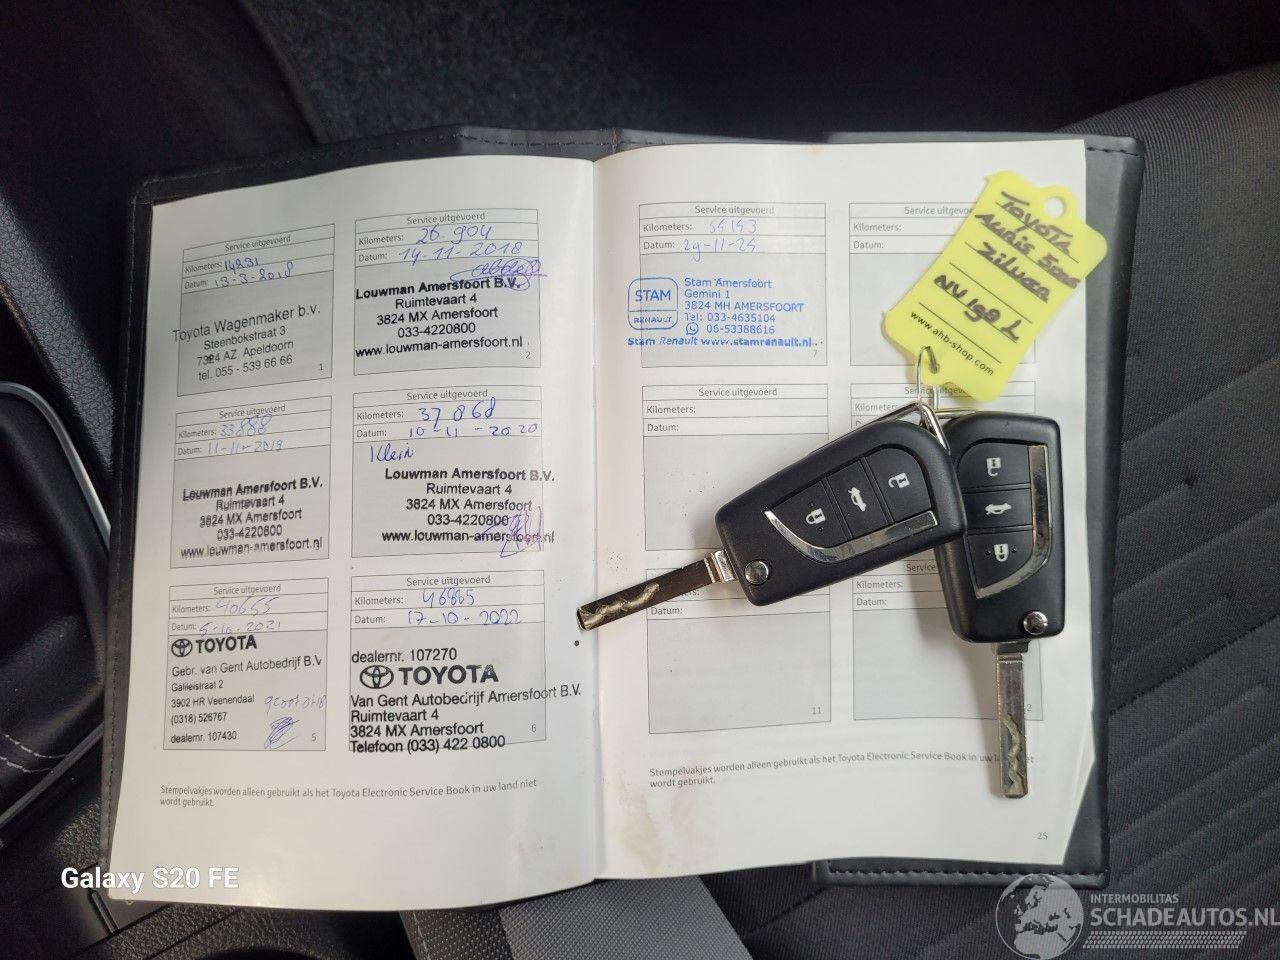 Service uitgevoerd
Kilometers: 14231
Datum: 13-3-2018
Toyota Wagenmaker b.v.
Steenbokstraat 3
7324 AZ Apeldoorn
tel. 055 - 539 66 66
1
Service uitgevoerd
Kilometers: 26.904
Datum: 14-11-2018
Louwman Amersfoort B.V.
Ruimtevaart 4
3824 MX Amersfoort
033-4220800
www.louwman-amersfoort.nl
2
Service uitgevoerd
Kilometers:
Datum: 11-11-2019
Louwman Amersfoort B.V.
Ruimtevaart 4
3824 MX Amersfoort
033-4220800
www.louwman-amersfoort.nl
3
Service uitgevoerd
Kilometers: 37868
Datum: 10-11-2020
Klein
Louwman Amersfoort B.V.
Ruimtevaart 4
3824 MX Amersfoort
033-4220800
www.louwman-amersfoort.nl
Service uitgevoerd
Kilometers: 40655
Datum: 5-10-2021
TOYOTA
Gebr. van Gent Autobedrijf B.V
Galileistraat 2
3902 HR Veenendaal
(0318) 526767
dealernr. 107430
5
Service uitgevoerd
Kilometers: 46865
Datum: 17-10-2022
dealernr. 107270
TOYOTA
Van Gent Autobedrijf Amersfoort B.V.
Ruimtevaart 4
3824 MX Amersfoort
Telefoon (033) 422 0800
6
Stempelvakjes worden alleen gebruikt als het Toyota Electronic Service Book in uw land niet
wordt gebruikt.
Service uitgevoerd
Kilometers: 54143
Datum: 29-11-24
STAM
RENAULT
Stam Amersfoort
Gemini 1
3824 MH AMERSFOORT
Tel: 033-4635104
06-53388616
Stam Renault www.stamrenault.nl
7
Service
Kilometers:
Datum:
Service uitgevoerd
Kilometers:
Datum:
Service uitgevoerd
Kilometers:
Datum:
11
Service
Kilometers:
Datum:
Stempelvakjes worden alleen gebruikt als het Toyota Electronic Service Book in uw land niet
wordt gebruikt.
25
Toyota
Auris
Zilver
NV 198 L
www.ahb-shop.com
Galaxy S20 FE
INTERMOBILITAS
SCHADEAUTOS.NL